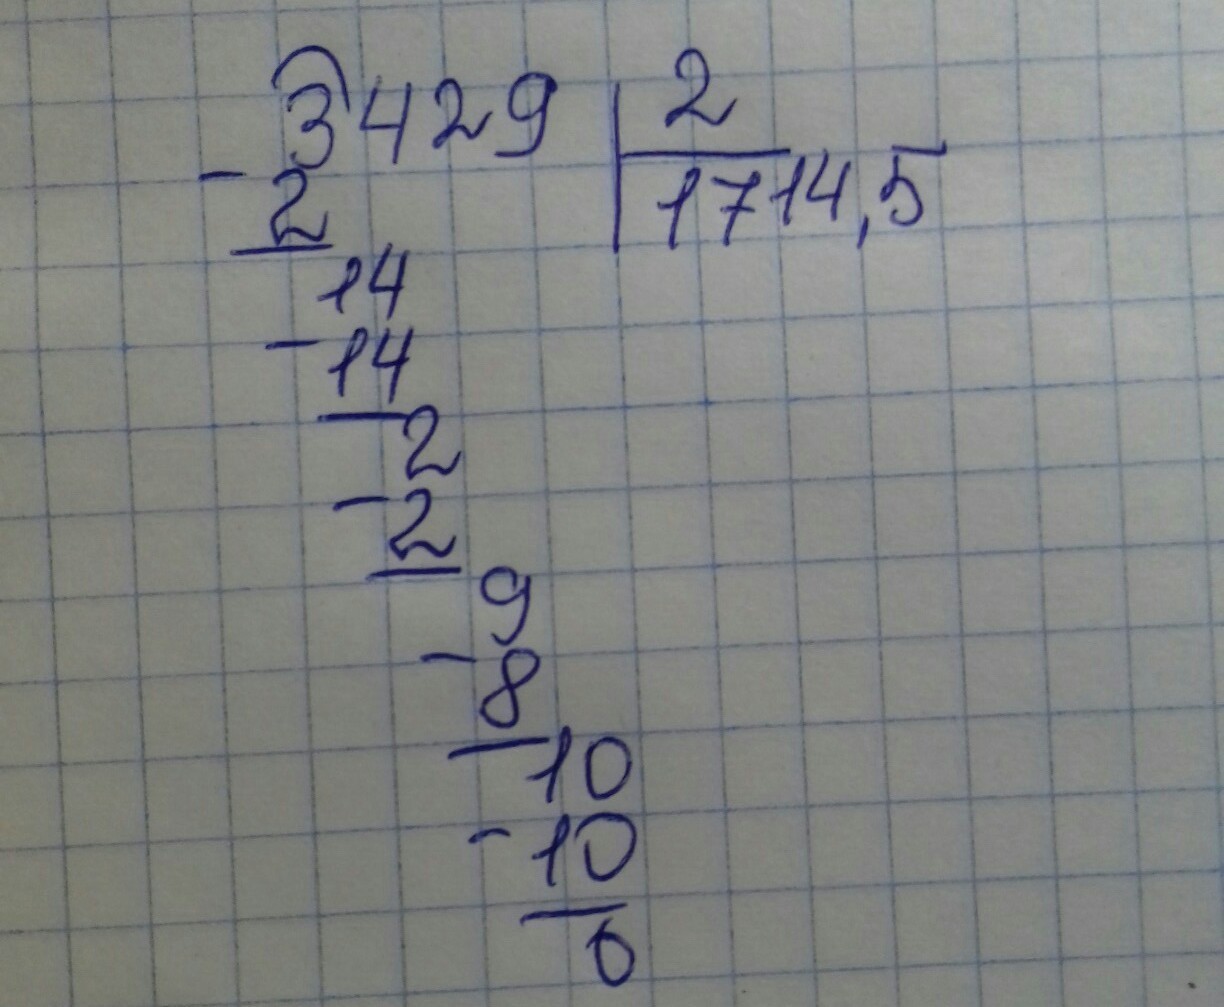 3429 2
1714,5
- 2
14
- 14
2
- 2
9
- 8
10
- 10
0